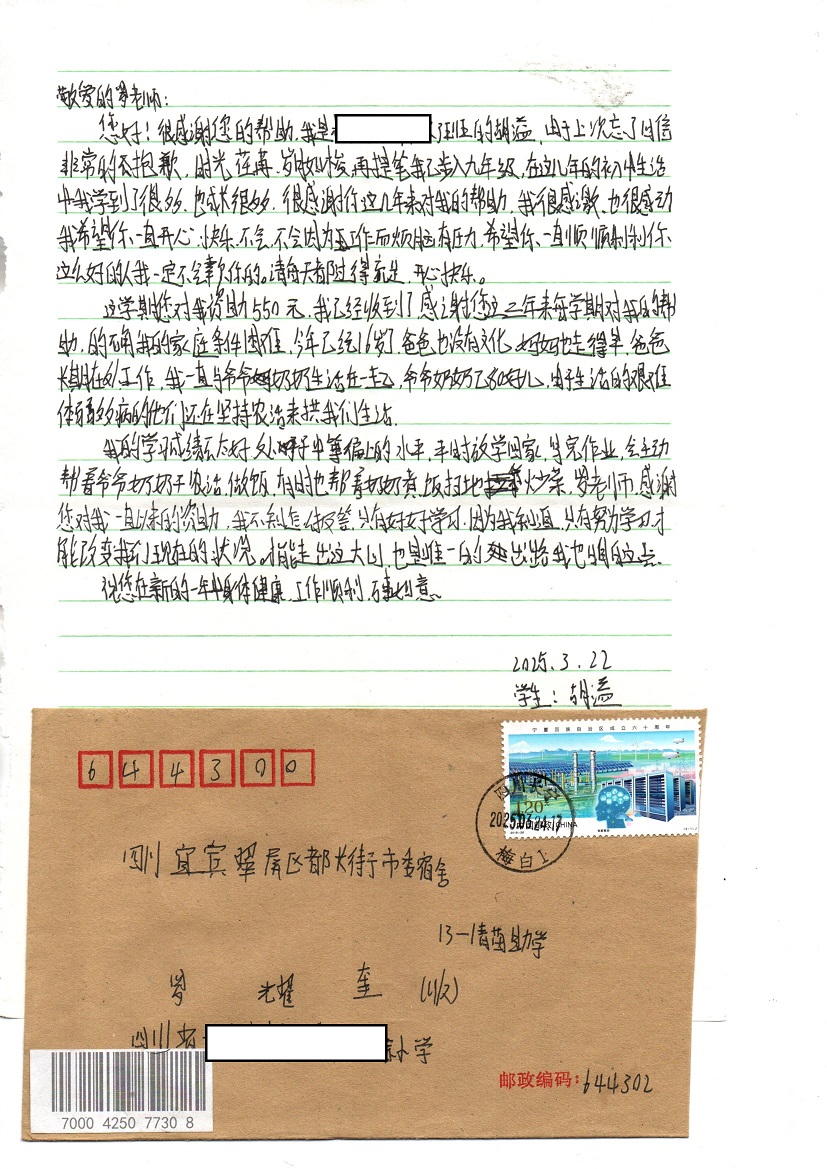 敬爱的罗老师:
您好!很感谢您的帮助,我是 班的胡溢,由于上次忘了回信
非常的抱歉,时光荏苒,岁月如梭,再提笔我已步入九年级,在这几年的初中生活
中我学到了很多,也成长很多,很感谢你这几年来对我的帮助,我很感激,也很感动
我希望你一直开心,快乐,不会,不会因为工作而烦恼有压力,希望你一直顺顺利利,你
这么好的人我一定不会辜负你的。请每天都过得充足,开心快乐。
这学期您对我资助550元,我已经收到了感谢您这三年来每学期对我的帮
助,的确我的家庭条件困难,今年已经16岁了,爸爸也没有文化,妈妈也走得早,爸爸
长期在外工作,我一直与爷爷奶奶生活在一起,爷爷奶奶已80好几,由于生活的艰难
体弱多病的他们还在坚持农活来拱我们生活,
我的学习成绩不太好,处于中等偏上的水平,平时放学回家,写完作业,会主动
帮着爷爷奶奶干农活,做饭,有时也帮着奶奶煮饭扫地炒菜,罗老师,感谢
您对我一直以来的资助,我不知怎么报答,只有好好学习,因为我知道,只有努力学习才
能改变我们现在的状况。才能走出这大山,也是唯一的出路我也明白这点。
祝您在新的一年身体健康,工作顺利,万事如意。
2025.3.22
学生:胡溢
644300
宁夏回族自治区成立六十周年
120
中国邮政 CHINA
四川长宁
2025.03.24.13
梅白1
四川宜宾翠屏区都长街于市委宿舍
13-1 青苗助学
罗光耀奎(收)
四川省 小学
邮政编码:644302
7000 4250 7730 8